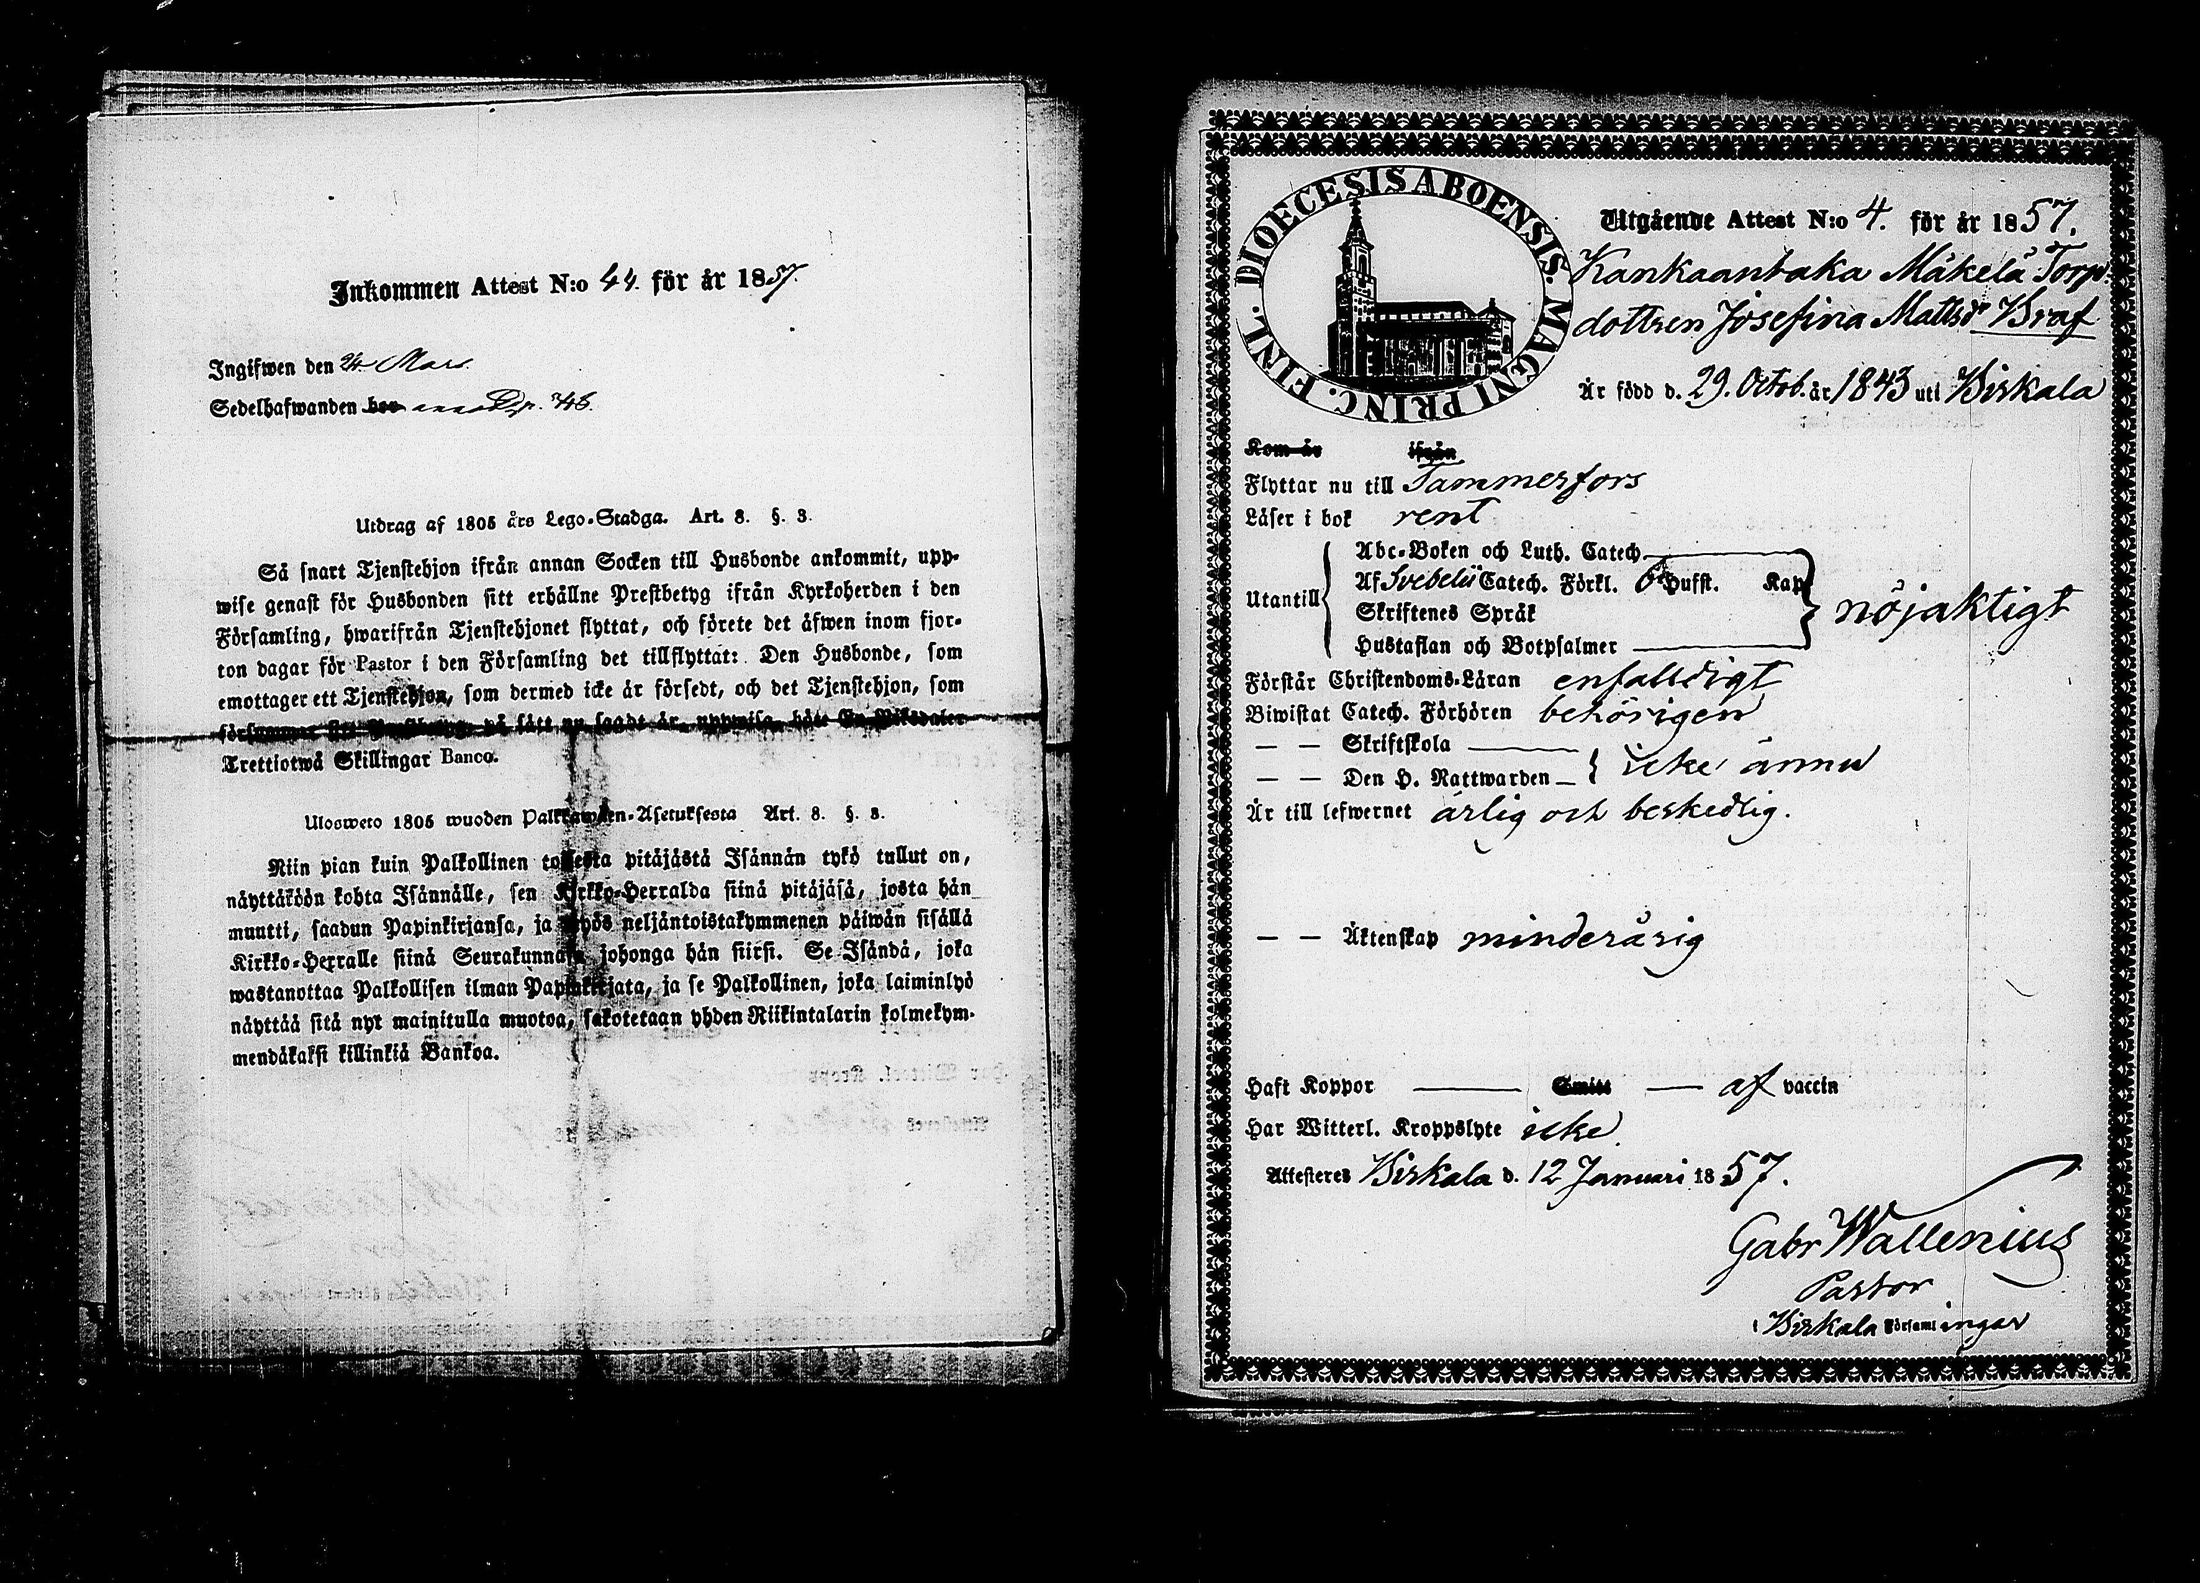 Inkommen Attest N:o 44. för år 1857.
Ingifwen den 24 Mars.
Sedelhafwanden
Utdrag af 1805 års Lego-Stadga. Art. 8. §. 3.
Så snart Tjenstehjon ifrån annan Socken till Husbonde ankommit, upp-
wise genast för Husbonden sitt erhållne Prestbetyg ifrån Kyrkoherden i den
Församling, hwarifrån Tjenstehjonet flyttat, och förete det äfwen inom fjor-
ton dagar för Pastor i den Församling det tillflyttat: Den Husbonde, som
emottager ett Tjenstehjon, som dermed icke är försedt, och det Tjenstehjon, som
försummar sitt Prestbetyg, på sätt nu sagdt är, uppwisa, böte En Riksdaler
Trettiotwå Skillingar Banco.
Ulosweto 1805 wuoden Palkkawäen-Asetuksesta Art. 8. §. 3.
Niin pian kuin Palkollinen toisesta pitäjästä Isännän tykö tullut on,
näyttäköön kohta Isännälle, sen Kirkko-Herralda siinä pitäjäsä, josta hän
muutti, saadun Papinkirjansa, ja myös neljäntoistakymmenen päiwän sisällä
Kirkko-Herralle siinä Seurakunnasa johonga hän siirsi. Se Isändä, joka
wastanottaa Palkollisen ilman Papinkirjata, ja se Palkollinen, joka laiminlyö
näyttää sitä nyt mainitulla muotoa, sakotetaan yhden Riikintalarin kolmekym-
mendäkaksi killinkiä Bankoa.
DIOECESIS ABOENSIS. MAGNI PRINC. FINL.
Utgående Attest N:o 4. för år 1857.
Kankaantaka Mäkelä Torp
dottren Josefina Mattsdr Braf
Är född d. 29. Octob. år 1843 uti Birkala
Kom år ifrån
Flyttar nu till Tammerfors
Läser i bok rent
Utantill
Abc-Boken och Luth. Catech
Af Svebelii Catech. Förkl. Hufst. Kap
Skriftenes Språk
Hustaflan och Botpsalmer
nöjaktigt
Förstår Christendoms-Läran enfalldigt
Biwistat Catech. Förhören behörigen
— — Skriftskola
— — Den H. Nattwarden
icke ännu
Är till lefwernet ärlig och beskedlig.
— — Äktenskap minderårig
Haft Koppor — Smitt — af vaccin
Har Witterl. Kroppslyte icke
Attesteres Birkala d. 12 Januari 1857.
Gabr Wallenius
Pastor
i Birkala Församlingar